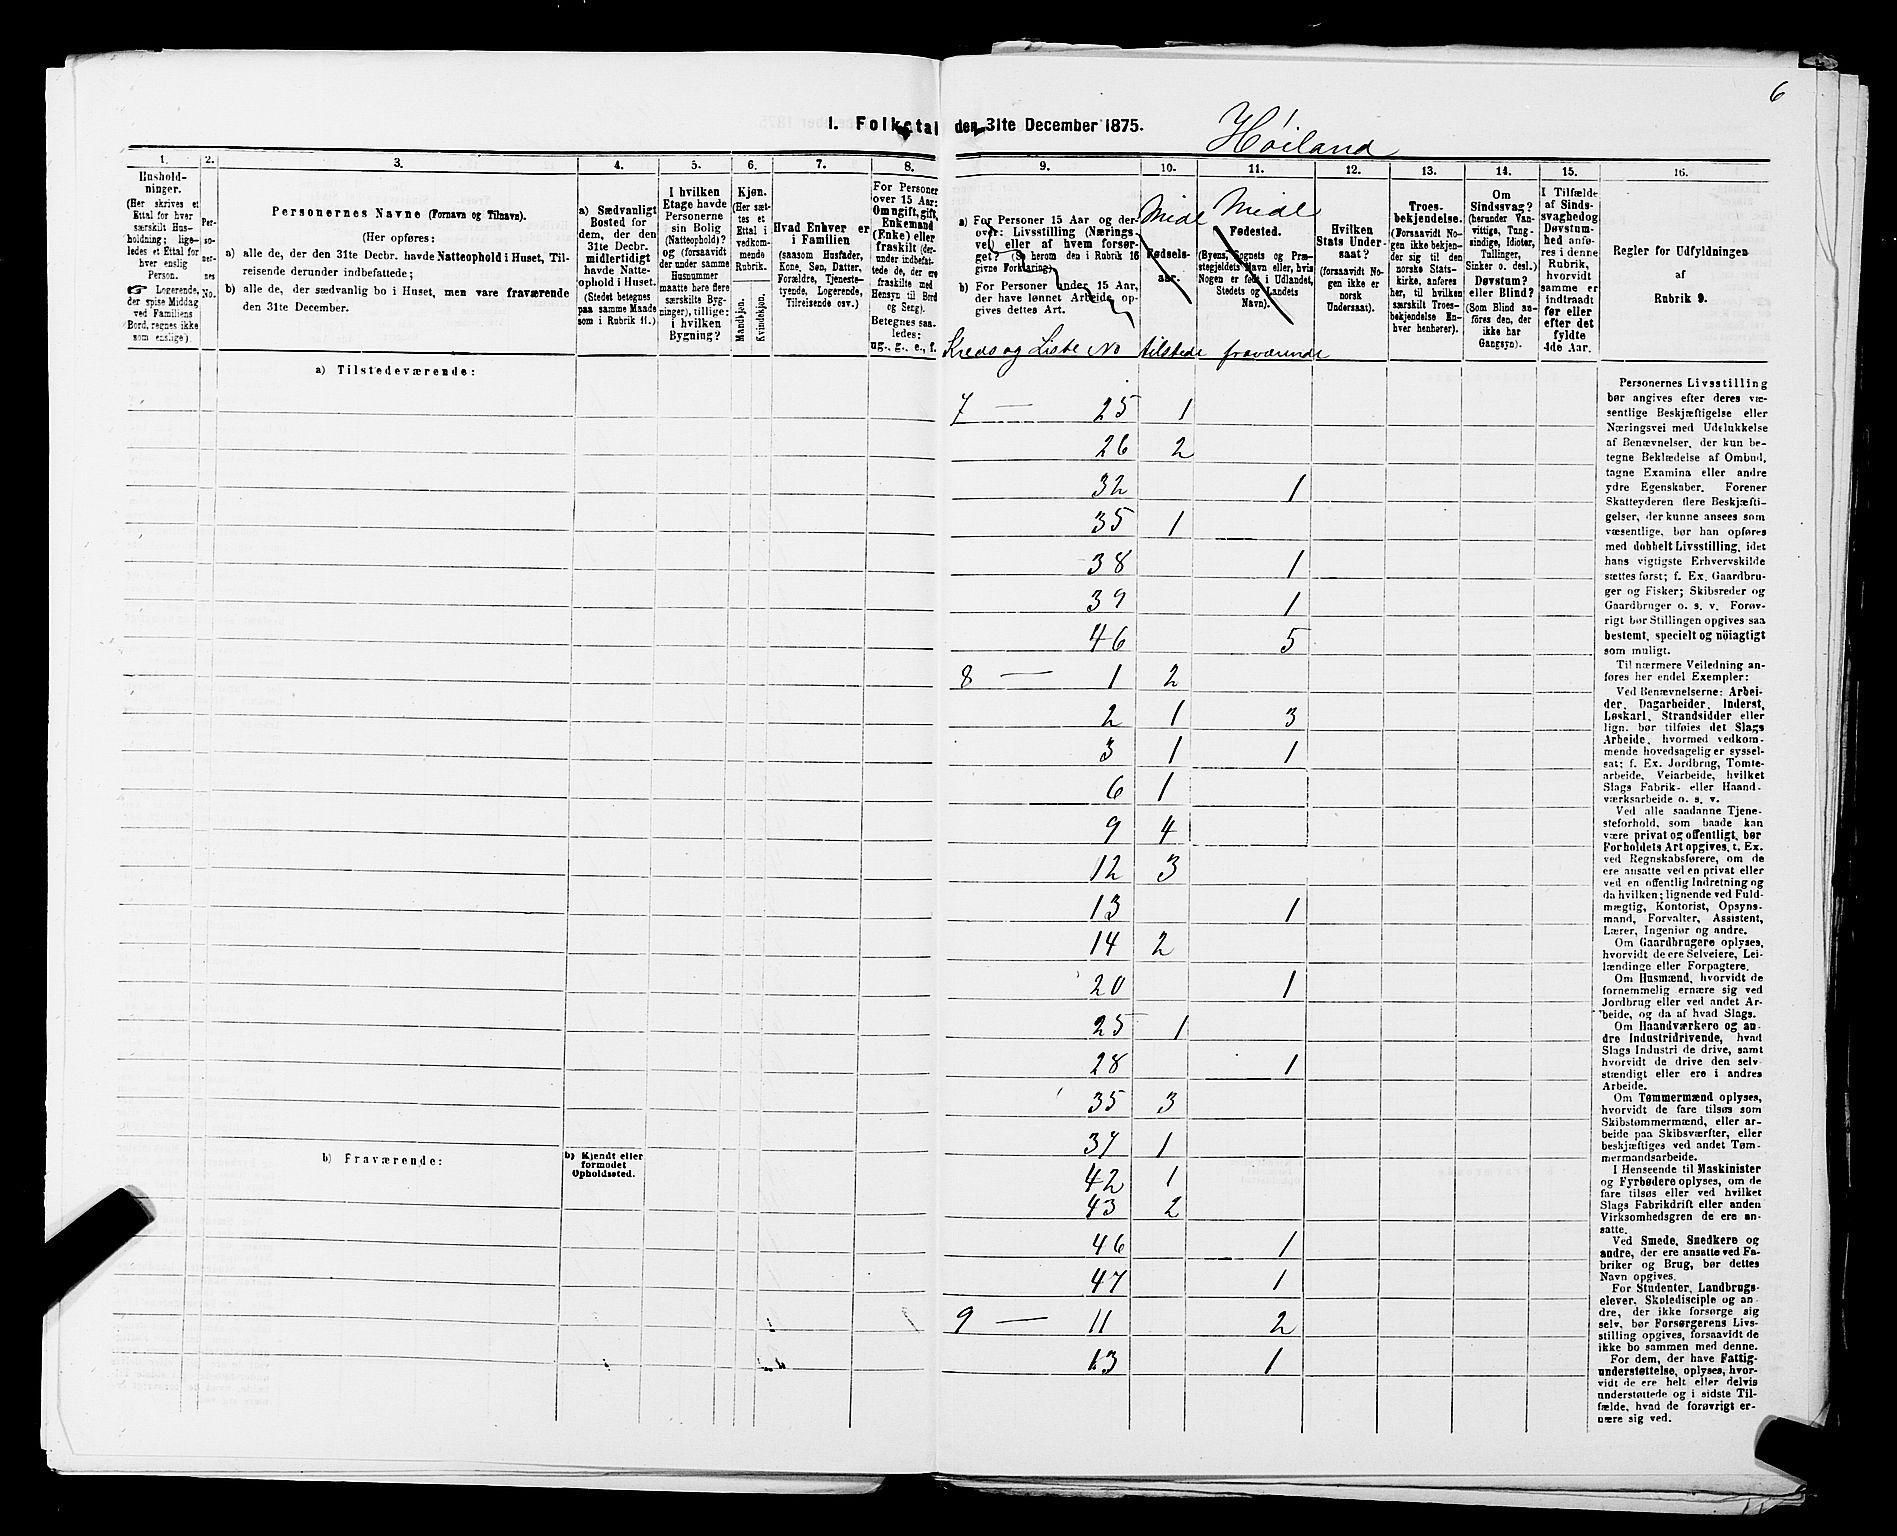 6
1. Folketal den 31te December 1875.
Høiland
1. 2. 3. 4. 5. 6. 7. 8.
Hushold-
ninger.
(Her skrives et
Ettal for hver
særskilt Hus-
holdning; lige-
ledes et Ettal for
hver enslig
Person.
☞ Logerende,
der spise Middag
ved Familiens
Bord, regnes ikke
som enslige).
Per-
so-
ner-
nes
No.
Personernes Navne (Fornavn og Tilnavn).
(Her opføres:
a) alle de, der den 31te Decbr. havde Natteophold i Huset, Til-
reisende derunder indbefattede;
b) alle de, der sædvanlig bo i Huset, men vare fraværende
den 31te December.
a) Sædvanligt
Bosted for
dem, der den
31te Decbr.
midlertidigt
havde Natte-
ophold i Huset.
(Stedet betegnes
paa samme Maade
som i Rubrik 11.)
I hvilken
Etage havde
Personerne
sin Bolig
(Natteophold)?
og (forsaavidt
der under samme
Husnummer
maatte høre flere
særskilte Byg-
ninger), tillige:
i hvilken
Bygning?
Kjøn.
(Her sæt-
tes et
Ettal i
vedkom-
mende
Rubrik.
Mandkjøn.
Kvindekjøn.
Hvad Enhver er
i Familien
(saasom Husfader,
Kone, Søn, Datter,
Forældre, Tjeneste-
tyende, Logerende,
Tilreisende osv.)
For Personer
over 15 Aar:
Om ugift, gift,
Enkemand
(Enke) eller
fraskilt (der-
under indbefat-
tede de, der ere
fraskilte med
Hensyn til Bord
og Seng).
Betegnes saa-
ledes:
ug., g., e., f.
a) Tilstedeværende:
b) Fraværende:
b) Kjendt eller
formodet
Opholdssted.
9. 10. 11. 12. 13. 14. 15. 16.
a) For Personer 15 Aar og der-
over: Livsstilling (Nærings-
vei) eller af hvem forsør-
get? (Se herom den i Rubrik 16
givne Forklaring)
b) For Personer under 15 Aar,
der have lønnet Arbeide op-
gives dettes Art.
Kreds og Liste No
Midl
Fødsels-
aar.
tilstede
Midl
Fødested.
(Byens, Sognets og Præ-
stegjeldets Navn eller, hvis
Nogen er født i Udlandet,
Stedets og Landets
Navn).
fraværende
Hvilken
Stats Under-
saat?
(forsaavidt No-
gen ikke er
norsk
Undersaat).
Troes-
bekjendelse.
(Forsaavidt No-
gen ikke bekjen-
der sig til den
norske Stats-
kirke, anføres
her, til hvilken
særskilt Troes-
bekjendelse En-
hver henhører).
Om
Sindssvag?
(herunder Van-
vittige, Tung-
sindige, Idioter,
Tullinger,
Sinker o. desl.)
Døvstum?
eller Blind?
(Som Blind an-
føres den, der
ikke har
Gangsyn).
I Tilfælde
af Sinds-
svaghed og
Døvstum-
hed anfø-
res i denne
Rubrik,
hvorvidt
samme er
indtraadt
før eller
efter det
fyldte
4de Aar.
Regler for Udfyldningen
af
Rubrik 9.
7 — 25 1
26 2
32 1
35 1
38 1
39 1
46 5
8 — 1 2
2 1 3
3 1 1
6 1
9 4
12 3
13 1
14 2
20 1
25 1
28 1
35 3
37 1
42 1
43 2
46 1
47 1
9 — 11 2
13 1
Personernes Livsstilling
bør angives efter deres væ-
sentlige Beskjæftigelse eller
Næringsvei med Udelukkelse
af Benævnelser, der kun be-
tegne Beklædelse af Ombud,
tagne Examina eller andre
ydre Egenskaber. Forener
Skatteyderen flere Beskjæfti-
gelser, der kunne ansees som
væsentlige, bør han opføres
med dobbelt Livsstilling, idet
hans vigtigste Erhvervskilde
sættes først; f. Ex. Gaardbru-
ger og Fisker; Skibsreder og
Gaardbruger o. s. v. Forøv-
rigt bør Stillingen opgives saa
bestemt, specielt og nöiagtigt
som muligt.
Til nærmere Veiledning an-
føres her endel Exempler:
Ved Benævnelserne: Arbei-
der, Dagarbeider, Inderst,
Løskarl, Strandsidder eller
lign. bør tilføies det Slags
Arbeide, hvormed vedkom-
mende hovedsagelig er syssel-
sat; f. Ex. Jordbrug, Tomte-
arbeide, Veiarbeide, hvilket
Slags Fabrik- eller Haand-
værksarbeide o. s. v.
Ved alle saadanne Tjene-
steforhold, som baade kan
være privat og offentligt, bør
Forholdets Art opgives, t. Ex.
ved Regnskabsførere, om de
ere ansatte ved en privat eller
ved en offentlig Indretning og
da hvilken; lignende ved Fuld-
mægtig, Kontorist, Opsyns-
mand, Forvalter, Assistent,
Lærer, Ingeniør og andre.
Om Gaardbrugere oplyses,
hvorvidt de ere Selveiere, Lei-
lændinge eller Forpagtere.
Om Husmænd, hvorvidt de
fornemmelig ernære sig ved
Jordbrug eller ved andet Ar-
beide, og da af hvad Slags.
Om Haandværkere og an-
dre Industridrivende, hvad
Slags Industri de drive, samt
hvorvidt de drive den selv-
stændigt eller ere i andres
Arbeide.
Om Tømmermænd oplyses,
hvorvidt de fare tilsøs som
Skibstømmermænd, eller ar-
beide paa Skibsværfter, eller
beskjæftiges ved andet Tøm-
mermandsarbeide.
I Henseende til Maskinister
og Fyrbødere oplyses, om de
fare tilsøs eller ved hvilket
Slags Fabrikdrift eller anden
Virksomhedsgren de ere an-
satte.
Ved Smede, Snedkere og
andre, der ere ansatte ved Fa-
briker og Brug, bør dettes
Navn opgives.
For Studenter, Landbrugs-
elever, Skoledisciple og an-
dre, der ikke forsørge sig
selv, bør Forsørgerens Livs-
stilling opgives, forsaavidt de
ikke bo sammen med denne.
For dem, der have Fattig-
understøttelse, oplyses, hvor-
vidt de ere helt eller delvis
understøttede og i sidste Til-
fælde, hvad de forøvrigt er-
nære sig ved.